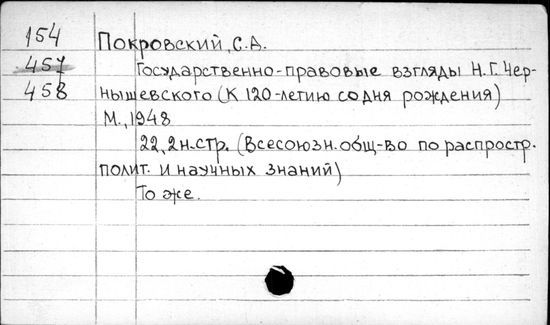 154
457
458
Покровский, С.Д.
Государственно-правовые взгляды Н.Г. Чер-
нышевского (К 120-летию со дня рождения)
М., 1948
22, 2н.стр. (Всесоюзн. общ-во по распростр.
полит. и научных знаний)
То же.